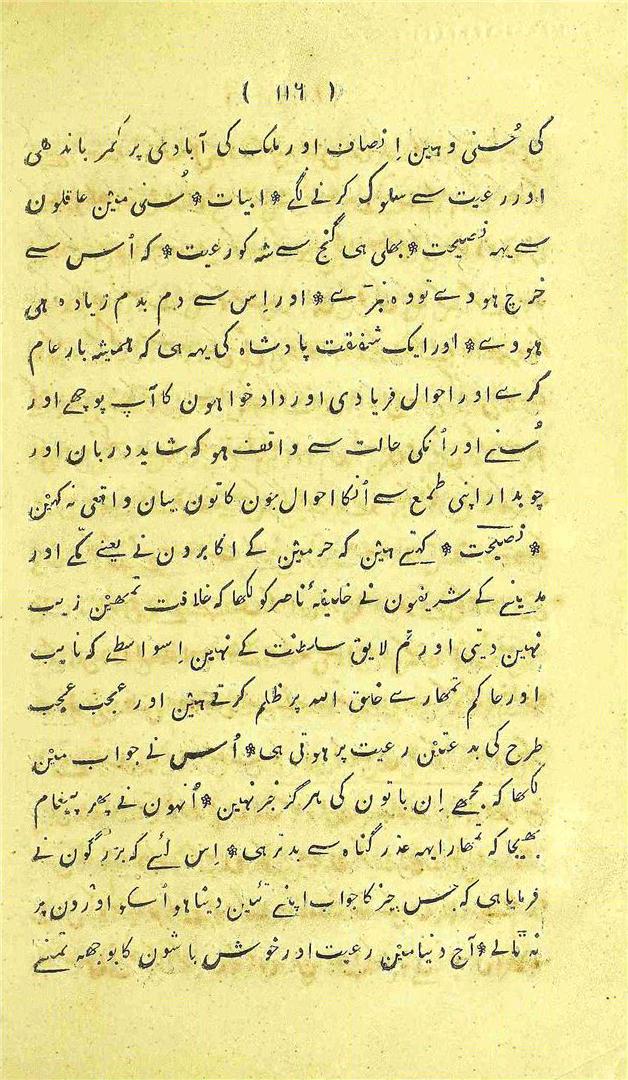 ( ۱۱۶ )
کی سُنی وہین اِنصاف اور ملک کی آبادی پر کمر باندھی
اور رعیت سے سلوک کرنے لگے * ابیات * سُنی مین عاقلون
سے یہہ نصیحت * بھلی ہی گنج سے شہ کو رعیت * کہ اُس سے
خرچ ہووے تو وہ نبڑے * اور اِس سے دم بدم زیادہ ہی
ہووے * اور ایک شفقت پادشاہ کی یہہ ہی کہ ہمیشہ بار عام
کرے اور احوال فریادی اور داد خواہون کا آپ پوچھے اور
سُنے اور اُنکی حالت سے واقف ہو کہ شاید دربان اور
چوبدار اپنی طمع سے اُنکا احوال بیان واقعی نہ کہین
* نصیحت * کہتے ہین کہ حرمین کے اکابرون نے یعنے مکے اور
مدینے کے شریفون نے خلیفۂ ناصر کو لکھا کہ خلافت تمھین زیب
نہین دیتی اور تم لایق سلطنت کے نہین اِسواسطے کہ نایب
اور حاکم تمھارے خلق اللہ پر ظلم کرتے ہین اور عجب عجب
طرح کی بدعتین رعیت پر ہوتی ہی * اُس نے جواب مین
لکھا کہ مجھے اِن باتون کی ہرگز خبر نہین * اُنہون نے پھر پیغام
بھیجا کہ تمھارا یہہ عذر گناہ سے بدتر ہی * اِس لئے کہ بزرگون نے
فرمایا ہی کہ جس چیز کا جواب اپنے تئین دینا ہو اُسکو اورون پر
نہ ٹالے * آج دنیا مین رعیت اور خوش باشون کا بوجھہ تمنے